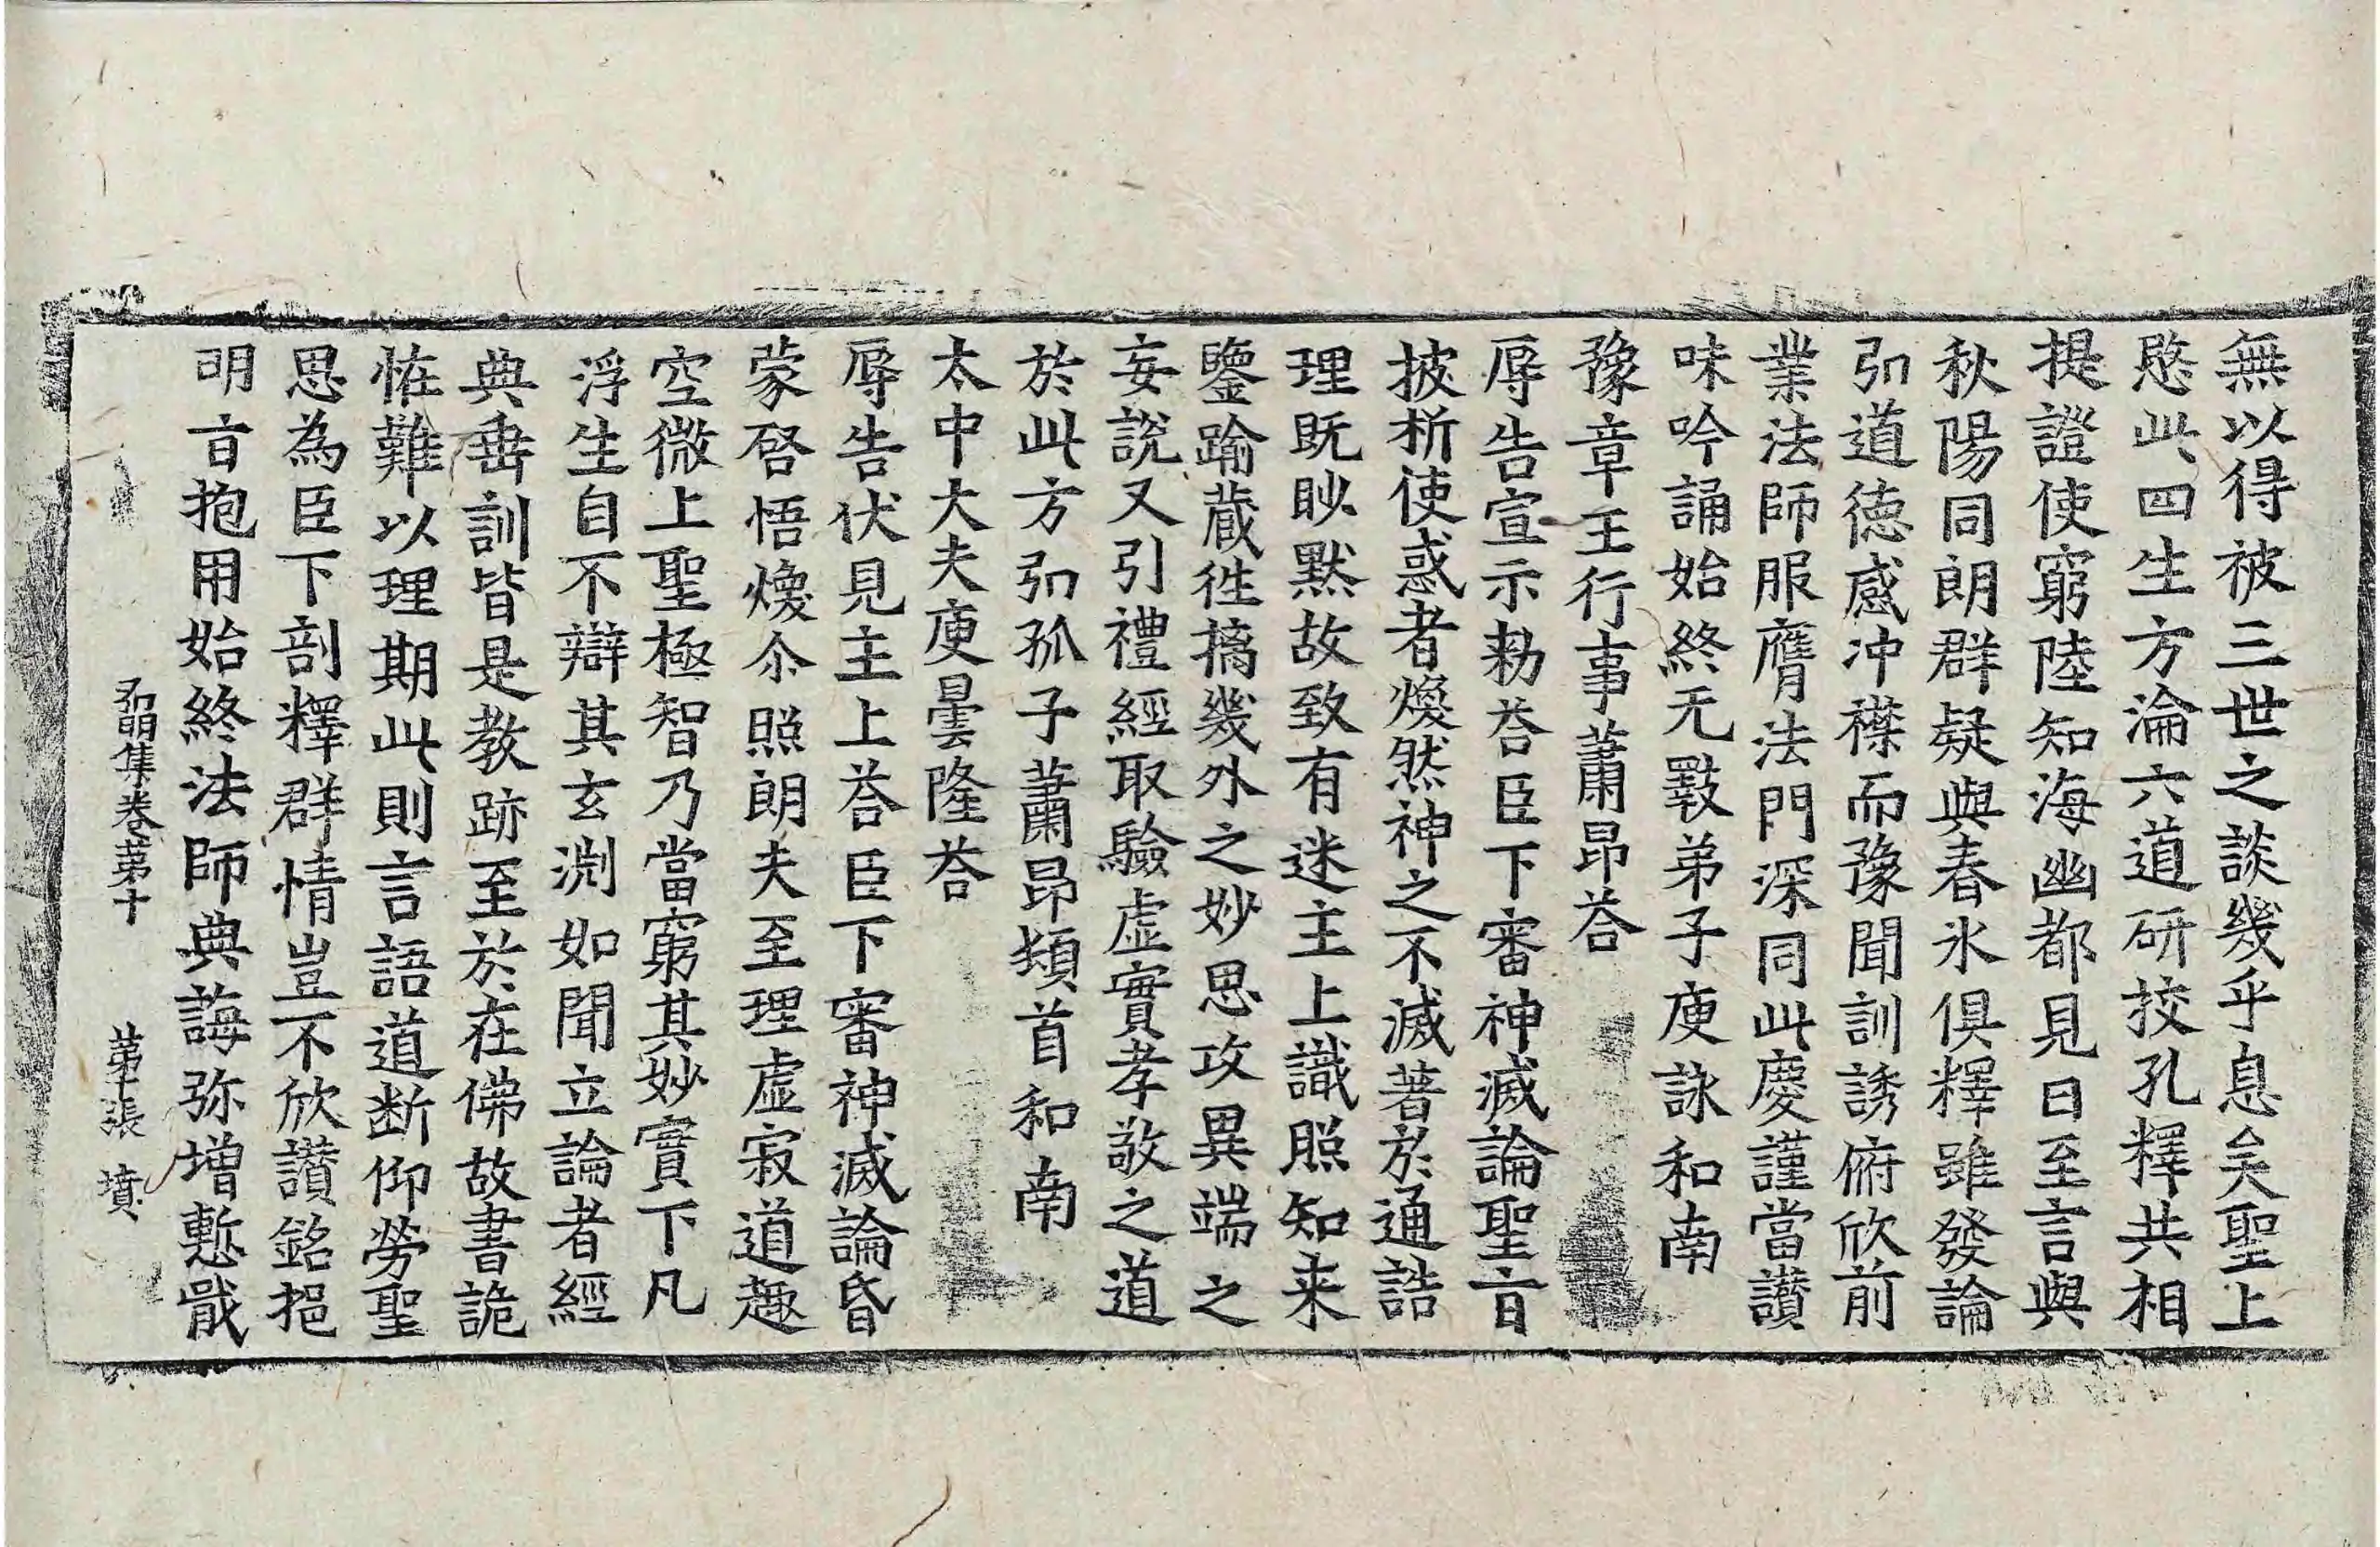 無以得被三世之談幾乎息矣聖上
愍此四生方淪六道研挍孔釋共相
提證使窮陸知海幽都見日至言與
秋陽同朗群疑與春氷俱釋雖發論
弘道德感冲襟而豫聞訓誘俯欣前
業法師服膺法門深同此慶謹當讃
味吟誦始終无斁弟子庾詠和南
豫章王行事蕭昂荅
辱告宣示勑荅臣下審神滅論聖旨
披析使惑者煥然神之不滅著於通誥
理既眇黙故致有迷主上識照知来
鑒踰蔵徃摛幾外之妙思攻異端之
妄說又引禮經取驗虚實孝敬之道
於此方弘孤子蕭昂頓首和南
太中大夫庾曇隆荅
辱告伏見主上荅臣下審神滅論昏
蒙啓悟煥尒照朗夫至理虚寂道趣
空微上聖極智乃當窮其妙實下凡
浮生自不辯其玄渕如聞立論者經
典垂訓皆是教跡至於在佛故書詭
恠難以理期此則言語道断仰勞聖
思為臣下剖釋群情豈不欣讃銘挹
明旨抱用始終法師典誨弥增慙戢
弘明集卷苐十 苐十張 墳